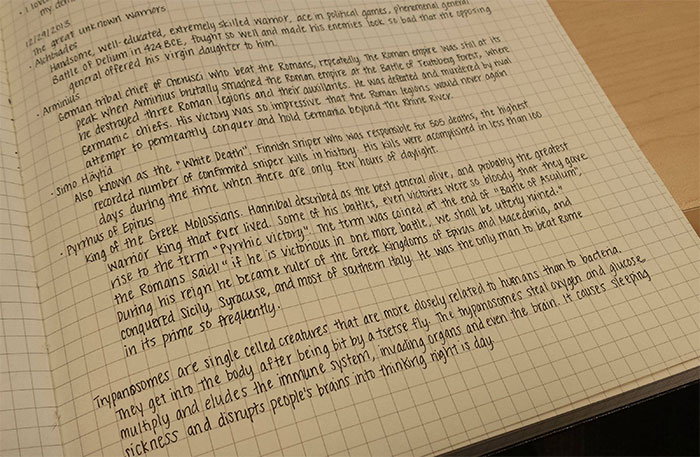 · I love
my don
12/29/2013
The great unknown warriors
· Alcibiades
Handsome, well-educated, extremely skilled warrior, ace in political games, phenomenal general
Battle of Delium in 424 BCE, fought so well and made his enemies look so bad that the opposing
general offered his virgin daughter to him.
· Arminius
German tribal chief of Cherusci who beat the Romans, repeatedly. The Roman empire was still at its
peak when Arminius brutally smashed the Roman empire at the Battle of Teutoberg forest, where
he destroyed three Roman legions and their auxiliaries. He was defeated and murdered by rival
Germanic chiefs. His victory was so impressive that the Roman legions would never again
attempt to permeantly conquer and hold Germania beyond the Rhine River.
· Simo Häyhä
Also known as the "White Death". Finnish sniper who was responsible for 505 deaths, the highest
recorded number of confirmed sniper kills in history. His kills were acomplished in less than 100
days during the time when there are only few hours of daylight.
· Pyrrhus of Epirus
King of the Greek Molossians. Hannibal described as the best general alive, and probably the greatest
warrior king that ever lived. Some of his battles, even victories were so bloody that they gave
rise to the term "Pyrrhic victory". The term was coined at the end of "Battle of Asculum",
the Romans said, "if he is victorious in one more battle, we shall be utterly ruined."
During his reign he became ruler of the Greek Kingdoms of Epirus and Macedonia, and
conquered Sicily, Syracuse, and most of southern Italy. He was the only man to beat Rome
in its prime so frequently.
Trypanosomes are single celled creatures that are more closely related to humans than to bacteria.
They get into the body after being bit by a tsetse fly. The trypanosomes steal oxygen and glucose
multiply and eludes the immune system, invading organs and even the brain. It causes sleeping
sickness and disrupts people's brains into thinking night is day.